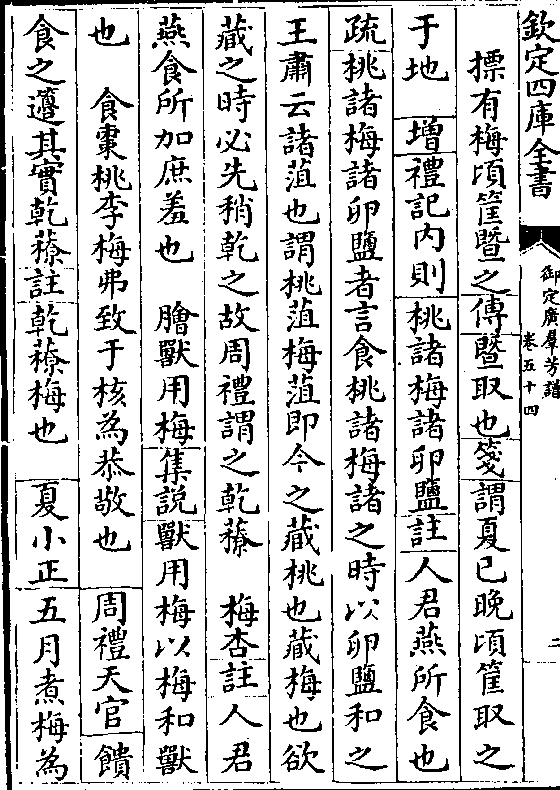 欽定四庫全書
御定廣羣芳譜
卷五十四
二
摽有梅頃筐暨之傳暨取也箋謂夏已晚頃筐取之
于地　增禮記內則桃諸梅諸卵鹽註人君燕所食也
疏桃諸梅諸卵鹽者言食桃諸梅諸之時以卵鹽和之
王肅云諸菹也謂桃菹梅菹即今之藏桃也藏梅也欲
藏之時必先稍乾之故周禮謂之乾䕩　梅杏註人君
燕食所加庶羞也　膾獸用梅集說獸用梅以梅和獸
也　食棗桃李梅弗致于核為恭敬也　周禮天官饋
食之籩其實乾䕩註乾䕩梅也　夏小正五月煮梅為